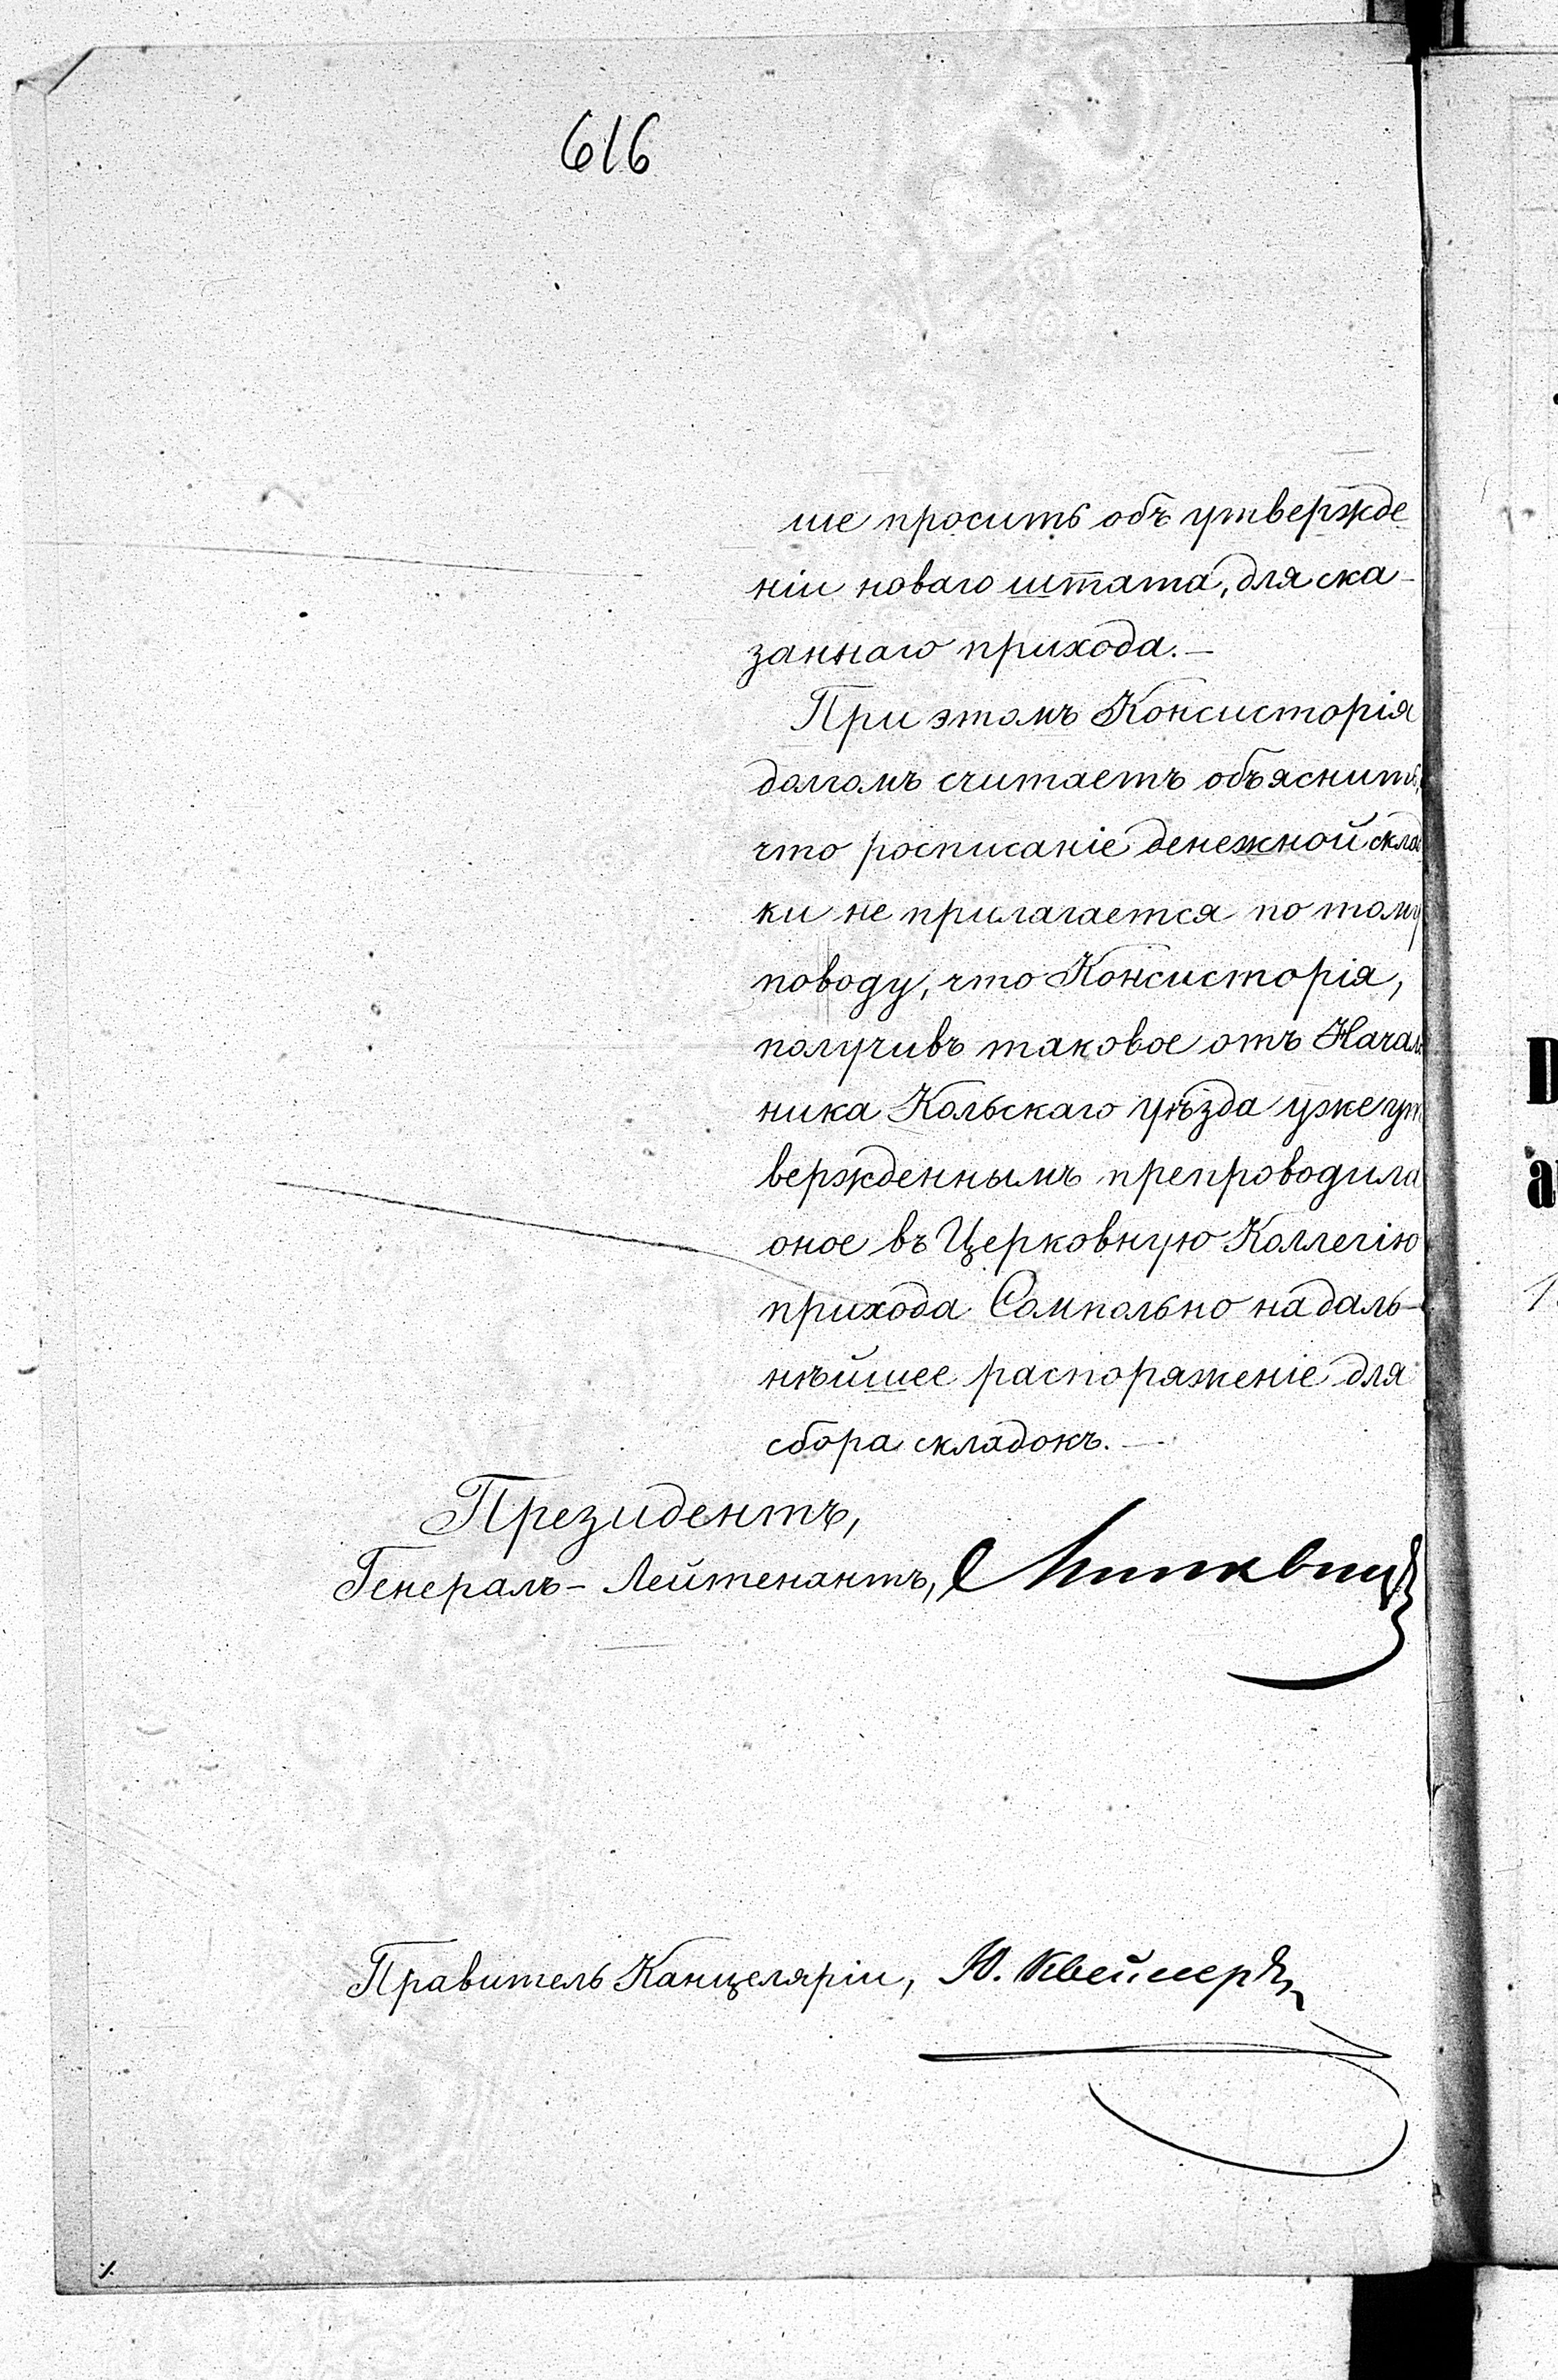 616
ше просить объ утвержде
ніи новаго штата, для ска-
заннаго прихода.—
При этомъ Консисторія
долгомъ считаетъ объяснить,
что росписаніе денежной склад
ки не прилагается по тому
поводу, что Консисторія,
получивъ таковое отъ Началь
ника Кольскаго уѣзда уже ут
вержденнымъ препроводила
оное въ Церковную Коллегію
прихода Сомпольно на даль-
нѣйшее распоряженіе для
сбора складокъ.—
Президентъ,
Генералъ-Лейтенантъ,
Правитель Канцеляріи, Ю.